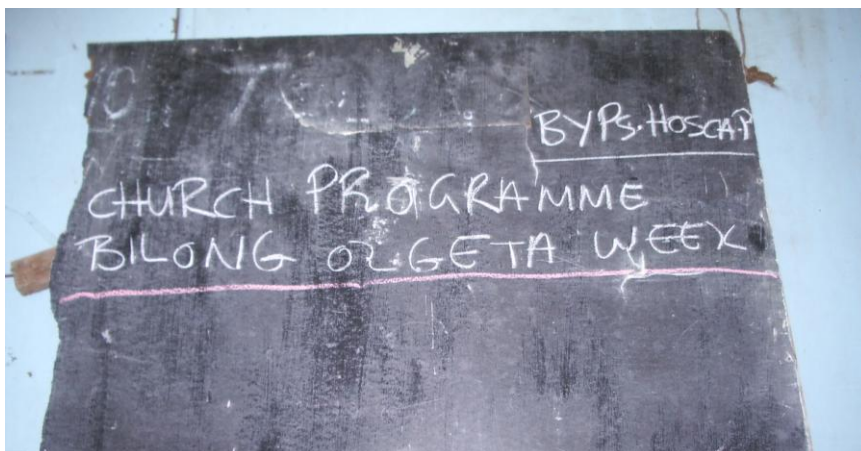 BY Ps. HOSCA.P
CHURCH PROGRAMME
BILONG OL GETA WEEK